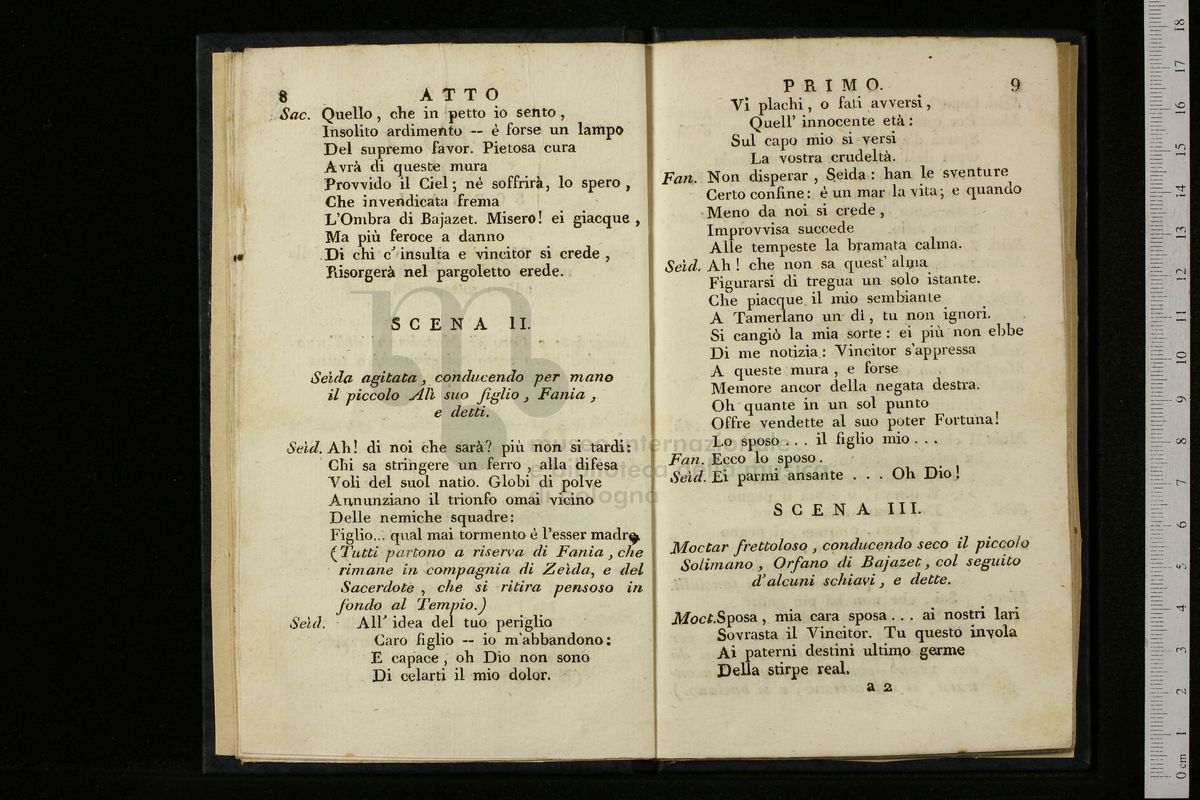 8 ATTO
Sac. Quello, che in petto io sento,
Insolito ardimento -- è forse un lampo
Del supremo favor. Pietosa cura
Avrà di queste mura
Provvido il Ciel; né soffrirà, lo spero,
Che invendicata frema
L'Ombra di Bajazet. Misero! ei giacque,
Ma più feroce a danno
Di chi c'insulta e vincitor si crede,
Risorgerà nel pargoletto erede.
SCENA II.
Seìda agitata, conducendo per mano
il piccolo Alì suo figlio, Fania,
e detti.
Seìd. Ah! di noi che sarà? più non si tardi:
Chi sa stringere un ferro, alla difesa
Voli del suol natìo. Globi di polve
Annunziano il trionfo omai vicino
Delle nemiche squadre:
Figlio... qual mai tormento è l'esser madre
(Tutti partono a riserva di Fania, che
rimane in compagnia di Zeìda, e del
Sacerdote, che si ritira pensoso in
fondo al Tempio.)
Seìd. All' idea del tuo periglio
Caro figlio -- io m'abbandono:
E capace, oh Dio non sono
Di celarti il mio dolor.
PRIMO. 9
Vi plachi, o fati avversi,
Quell' innocente età:
Sul capo mio si versi
La vostra crudeltà.
Fan. Non disperar, Seìda: han le sventure
Certo confine: è un mar la vita; e quando
Meno da noi si crede,
Improvvisa succede
Alle tempeste la bramata calma.
Seìd. Ah! che non sa quest' alma
Figurarsi di tregua un solo istante.
Che piacque il mio sembiante
A Tamerlano un dì, tu non ignori.
Si cangiò la mia sorte: ei più non ebbe
Di me notizia: Vincitor s'appressa
A queste mura, e forse
Memore ancor della negata destra.
Oh quante in un sol punto
Offre vendette al suo poter Fortuna!
Lo sposo... il figlio mio...
Fan. Ecco lo sposo.
Seìd. Ei parmi ansante... Oh Dio!
SCENA III.
Moctar frettoloso, conducendo seco il piccolo
Solimano, Orfano di Bajazet, col seguito
d'alcuni schiavi, e dette.
Moct. Sposa, mia cara sposa... ai nostri lari
Sovrasta il Vincitor. Tu questo invola
Ai paterni destini ultimo germe
Della stirpe real.
a 2
museo internazionale
e biblioteca della musica
di bologna
0 cm 1 2 3 4 5 6 7 8 9 10 11 12 13 14 15 16 17 18